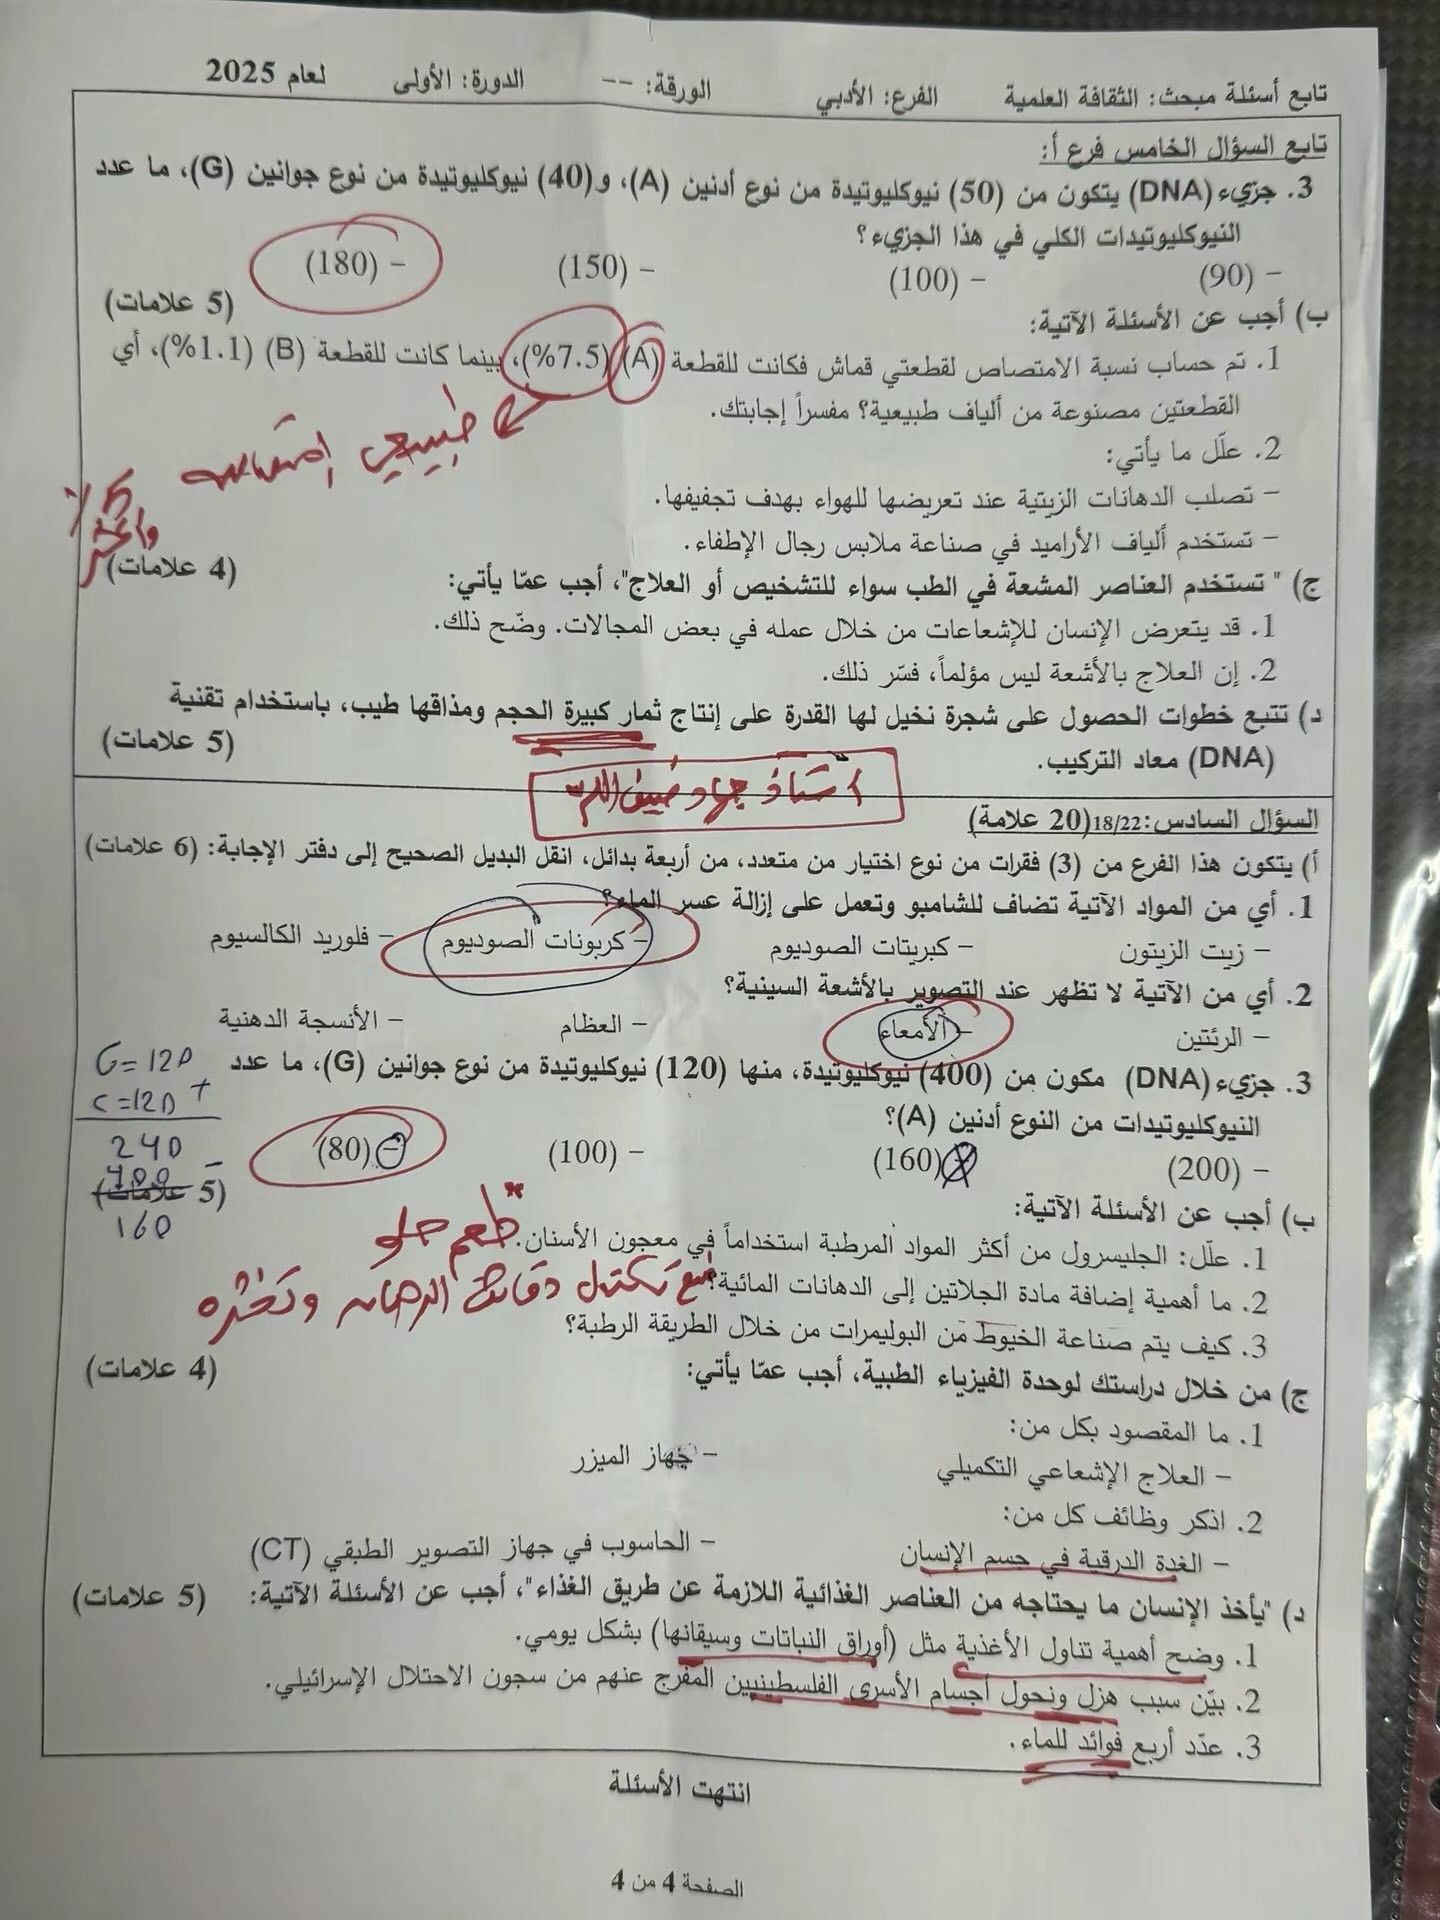 تابع أسئلة مبحث: الثقافة العلمية الفرع: الأدبي الورقة: -- الدورة: الأولى لعام 2025
تابع السؤال الخامس فرع أ:
3. جزيء (DNA) يتكون من (50) نيوكليوتيدة من نوع أدنين (A)، و(40) نيوكليوتيدة من نوع جوانين (G)، ما عدد
النيوكليوتيدات الكلي في هذا الجزيء؟
- (90) - (100) - (150) - (180)
ب) أجب عن الأسئلة الآتية: (5 علامات)
1. تم حساب نسبة الامتصاص لقطعتي قماش فكانت للقطعة (A) (7.5%)، بينما كانت للقطعة (B) (1.1%)، أي
القطعتين مصنوعة من ألياف طبيعية؟ مفسراً إجابتك.
طبيعي امتصاصه 5% وأكثر
2. علّل ما يأتي:
- تصلب الدهانات الزيتية عند تعريضها للهواء بهدف تجفيفها.
- تستخدم ألياف الأراميد في صناعة ملابس رجال الإطفاء.
ج) " تستخدم العناصر المشعة في الطب سواء للتشخيص أو العلاج"، أجب عمّا يأتي: (4 علامات)
1. قد يتعرض الإنسان للإشعاعات من خلال عمله في بعض المجالات. وضّح ذلك.
2. إن العلاج بالأشعة ليس مؤلماً، فسّر ذلك.
د) تتبع خطوات الحصول على شجرة نخيل لها القدرة على إنتاج ثمار كبيرة الحجم ومذاقها طيب، باستخدام تقنية
(DNA) معاد التركيب. (5 علامات)
أستاذ جهاد ضيف الله
السؤال السادس:18/22(20 علامة)
أ) يتكون هذا الفرع من (3) فقرات من نوع اختيار من متعدد، من أربعة بدائل، انقل البديل الصحيح إلى دفتر الإجابة: (6 علامات)
1. أي من المواد الآتية تضاف للشامبو وتعمل على إزالة عسر الماء؟
- زيت الزيتون - كبريتات الصوديوم - كربونات الصوديوم - فلوريد الكالسيوم
2. أي من الآتية لا تظهر عند التصوير بالأشعة السينية؟
- الرئتين - الأمعاء - العظام - الأنسجة الدهنية
3. جزيء (DNA) مكون من (400) نيوكليوتيدة، منها (120) نيوكليوتيدة من نوع جوانين (G)، ما عدد
النيوكليوتيدات من النوع أدنين (A)؟
- (200) - (160) - (100) - (80)
G = 120
C = 120 +
240
400 -
160
ب) أجب عن الأسئلة الآتية: (5 علامات)
1. علّل: الجليسرول من أكثر المواد المرطبة استخداماً في معجون الأسنان. طعم حلو
2. ما أهمية إضافة مادة الجلاتين إلى الدهانات المائية؟ منع تكتل دقائق الدهان وتخثره
3. كيف يتم صناعة الخيوط من البوليمرات من خلال الطريقة الرطبة؟
ج) من خلال دراستك لوحدة الفيزياء الطبية، أجب عمّا يأتي: (4 علامات)
1. ما المقصود بكل من:
- العلاج الإشعاعي التكميلي - جهاز الميزر
2. اذكر وظائف كل من:
- الغدة الدرقية في جسم الإنسان - الحاسوب في جهاز التصوير الطبقي (CT)
د) "يأخذ الإنسان ما يحتاجه من العناصر الغذائية اللازمة عن طريق الغذاء"، أجب عن الأسئلة الآتية: (5 علامات)
1. وضح أهمية تناول الأغذية مثل (أوراق النباتات وسيقانها) بشكل يومي.
2. بيّن سبب هزل ونحول أجسام الأسرى الفلسطينيين المفرج عنهم من سجون الاحتلال الإسرائيلي.
3. عدّد أربع فوائد للماء.
انتهت الأسئلة
الصفحة 4 من 4